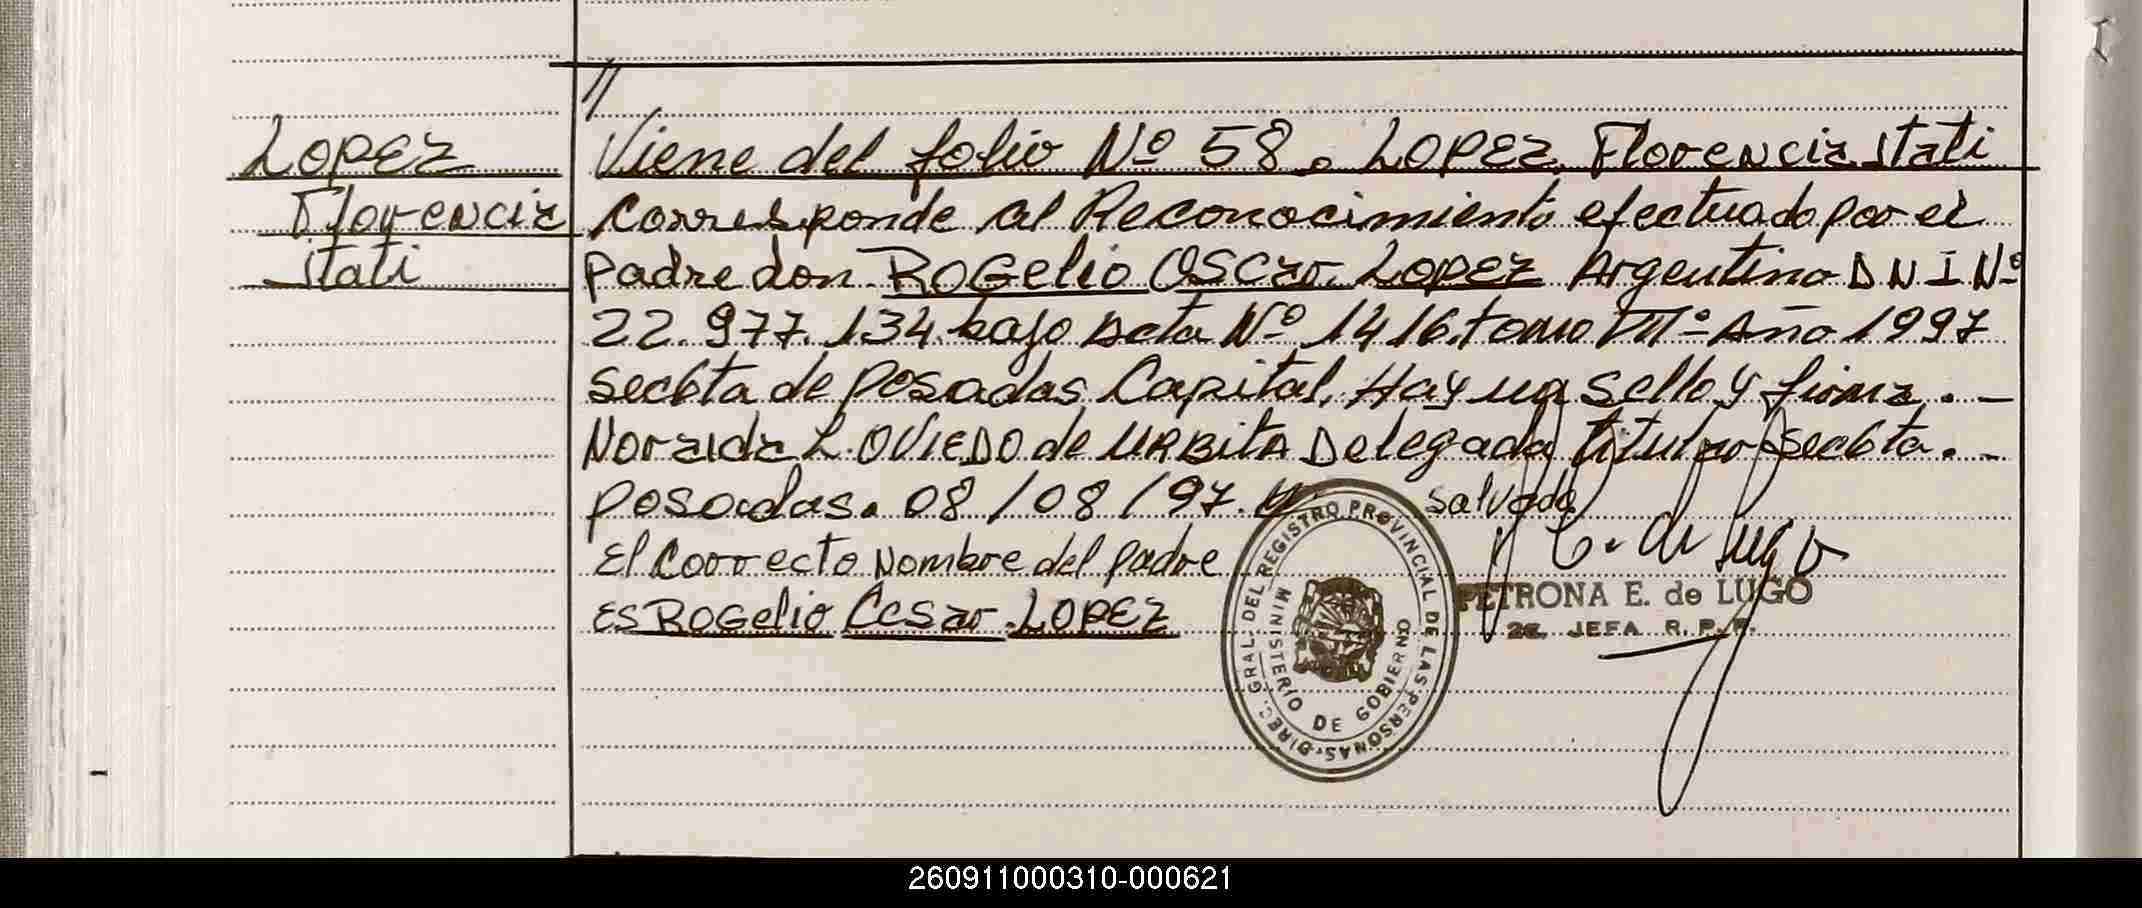 //
LOPEZ
Florencia
Itati
Viene del folio Nº 58. LOPEZ, Florencia Itati
Corresponde al Reconocimiento efectuado por el
padre don ROGelio OSCar LOPEZ Argentino D N I Nº
22.977.134 bajo Acta Nº 1416. tomo VIIº Año 1997
Sec 6ta de Posadas Capital, Hay un Sello y firma. -
Noraida L. OVIEDO de URBITA Delegada titular Sec 6ta. -
Posadas. 08/08/97.
Salvado
El Correcto Nombre del padre
ES ROGelio Cesar LOPEZ
DIREC. GRAL. DEL REGISTRO PROVINCIAL DE LAS PERSONAS
MINISTERIO DE GOBIERNO
PETRONA E. de LUGO
2a. JEFA R. P. P.
260911000310-000621